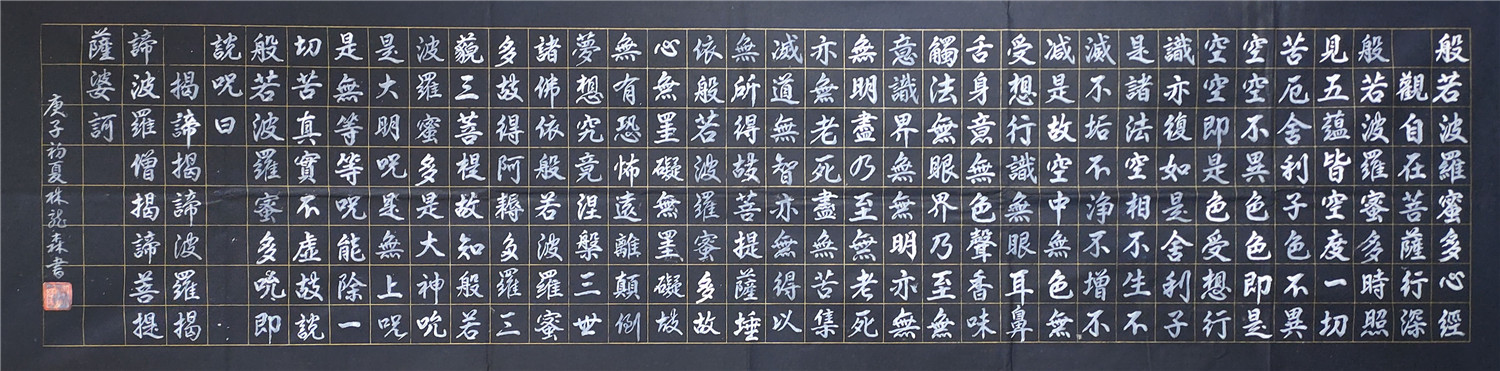 般若波羅蜜多心經
觀自在菩薩行深
般若波羅蜜多時照
見五蘊皆空度一切
苦厄舍利子色不異
空空不異色色即是
空空即是色受想行
識亦復如是舍利子
是諸法空相不生不
滅不垢不淨不增不
减是故空中無色無
受想行識無眼耳鼻
舌身意無色聲香味
觸法無眼界乃至無
意識界無無明亦無
無明盡乃至無老死
亦無老死盡無苦集
滅道無智亦無得以
無所得故菩提薩埵
依般若波羅蜜多故
心無罣礙無罣礙故
無有恐怖遠離顛倒
夢想究竟涅槃三世
諸佛依般若波羅蜜
多故得阿耨多羅三
藐三菩提故知般若
波羅蜜多是大神咒
是大明咒是無上咒
是無等等咒能除一
切苦真實不虛故說
般若波羅蜜多咒即
說咒曰：
揭諦揭諦波羅揭
諦波羅僧揭諦菩提
薩婆訶
庚子初夏林龍森書